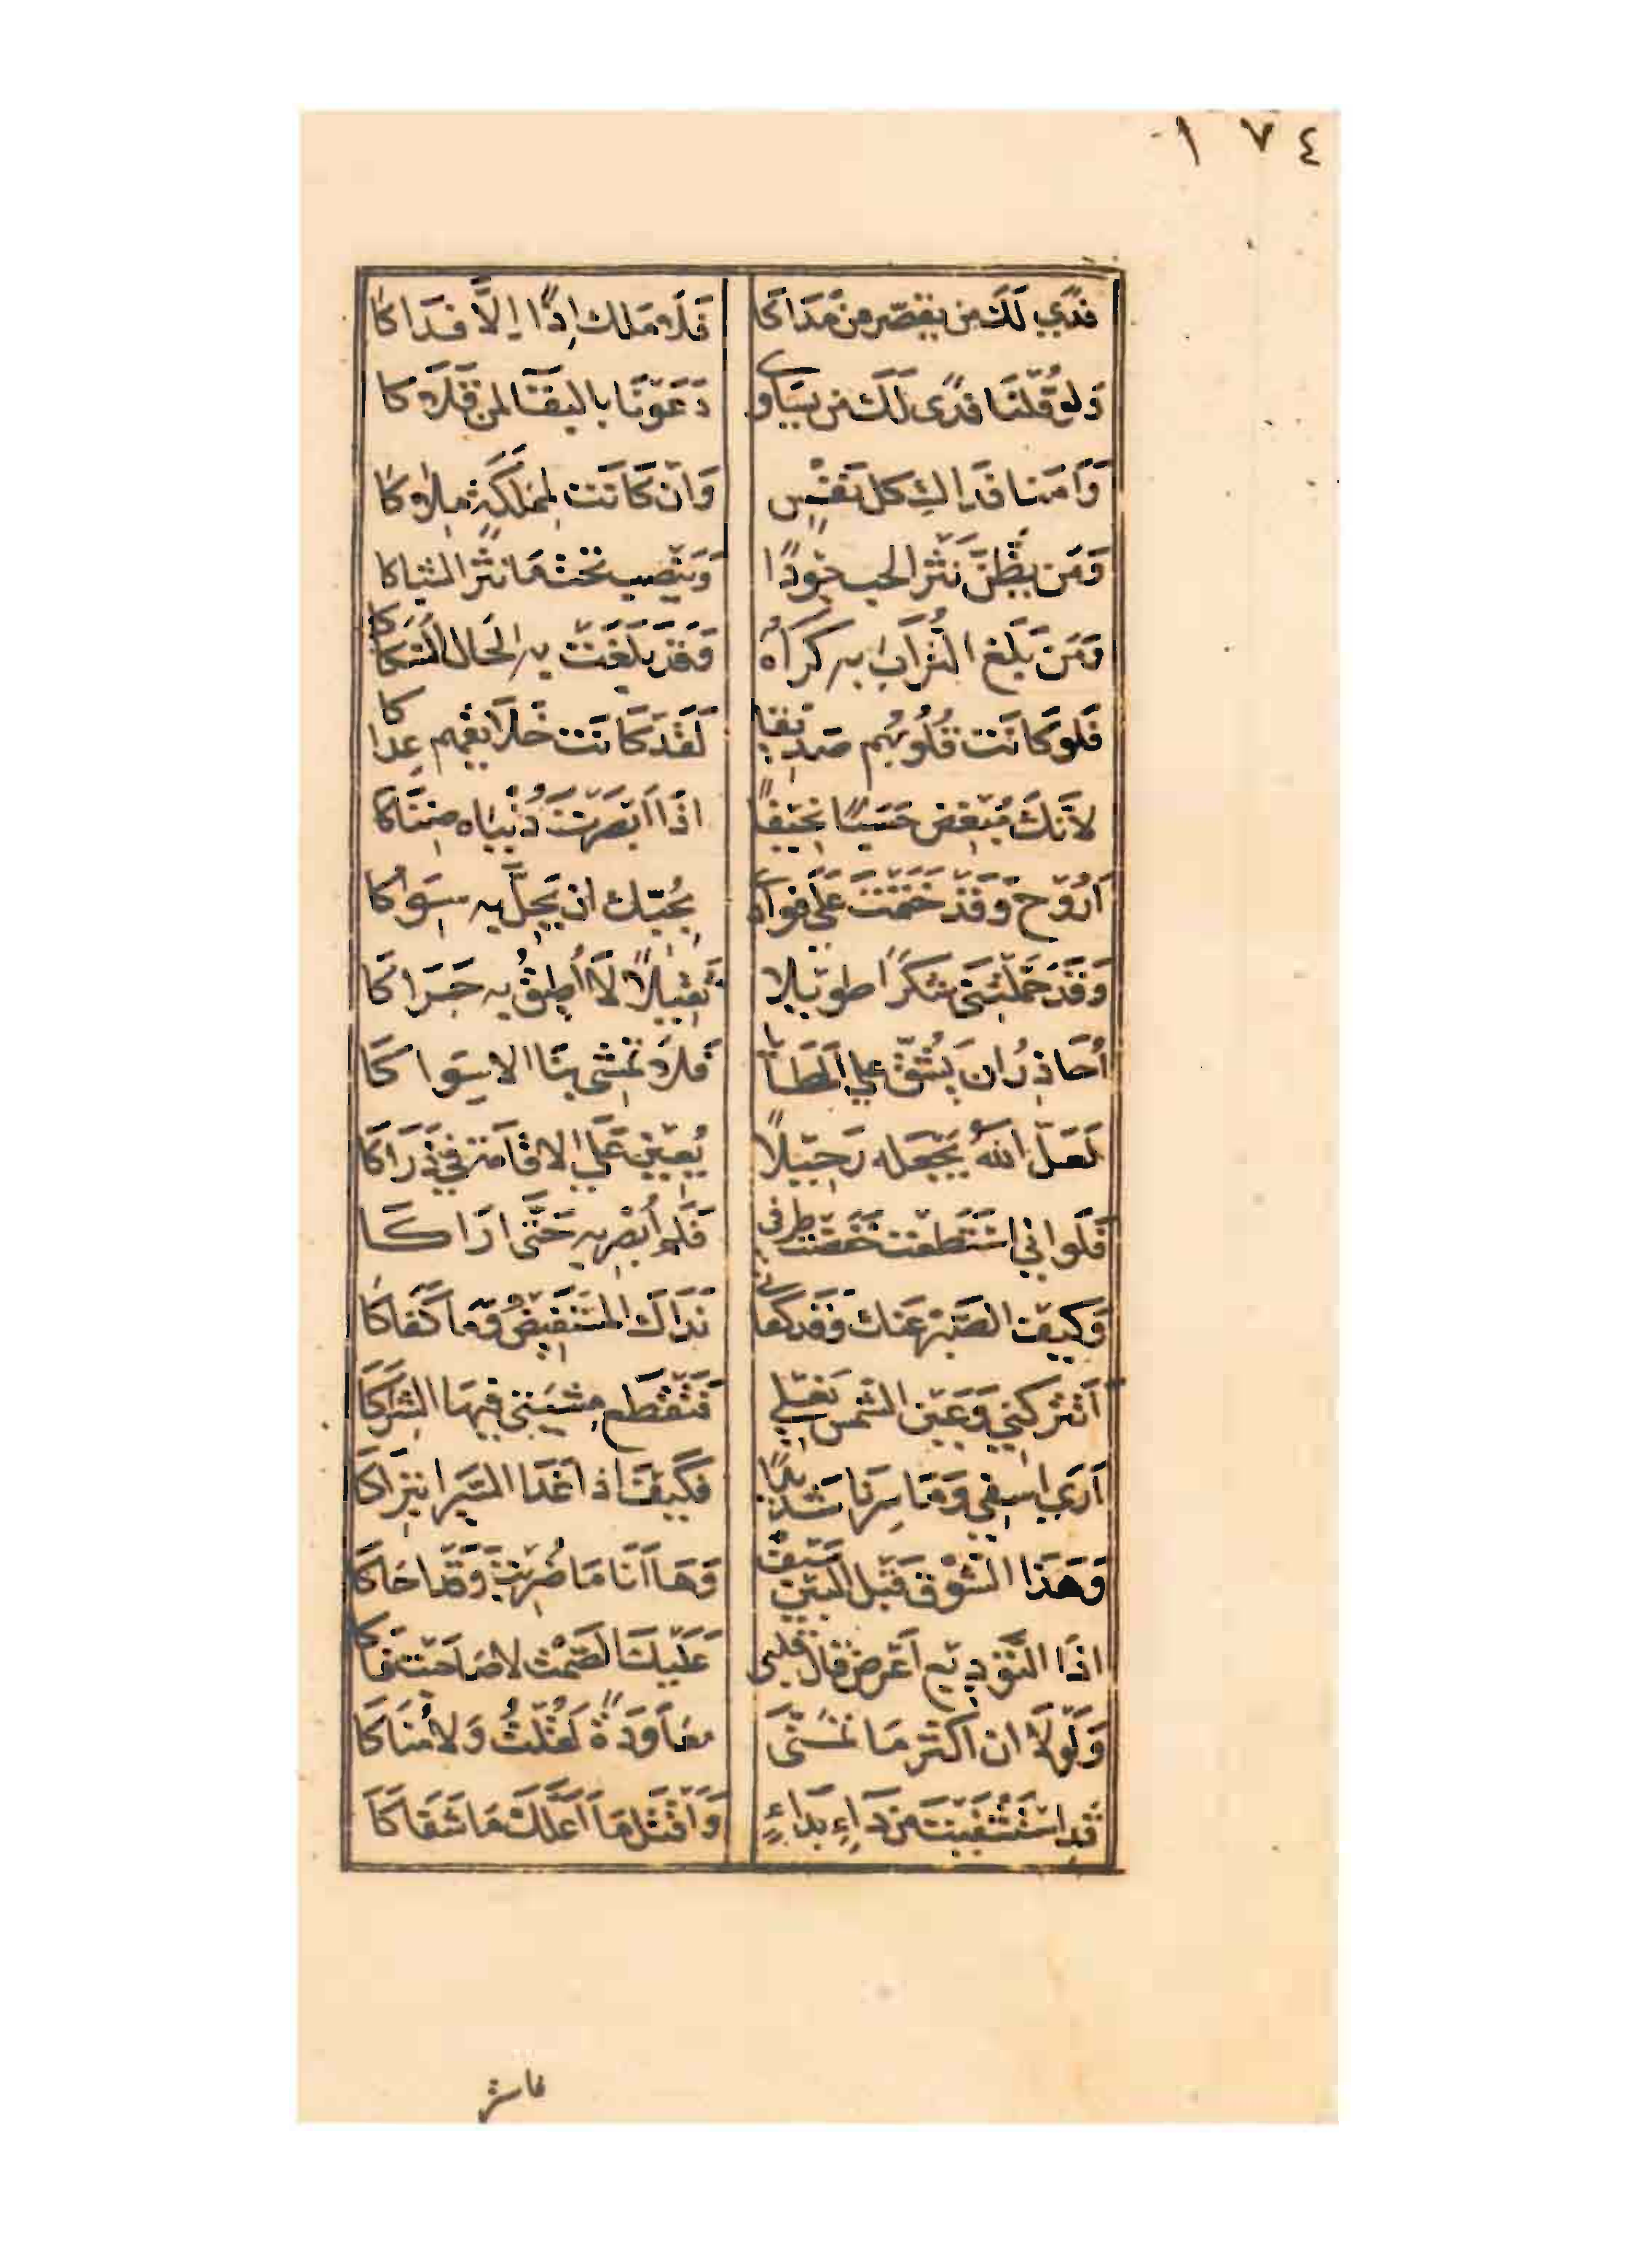 ١٧٤
فدًي لَكَ من يقصّر من مَدَاكَا فَلَا مَلِك إذًا إلَّا فَدَاكا
وَلو قُلْنَا فدًى لَكَ من يسَاوي دَعَوْنَا بالبقَا لمن قَلَاكا
وَآمَنا فدَاءك كل نفسٍ وَان كَانَت لمملكةٍ ملاكا
وَمَن يظّنّ نَثْر الحب جُودًا وَيَنْصِب تحْتَ مَا نثَر الشباكا
وَمَن بَلَغ التُرَابُ به كَرَاهُ وَقَد بَلَغَتْ به الحَال السُكاكا
فَلو كَانَت قُلُوبُهُم صَدِيقا لَقَد كَانَت خَلَايقهم عِداكا
لأَنكَ مُبْغِض حَسَبًا نَحِيفًا اذَا أَبْصَرْتَ دُنْيَاه ضِنَاكا
أَرُوْح وَقَدْ خَتَمْتَ عَلَى فوادي بحُبّك ان يَحِلَّ به سِوَاكا
وَقَدْ حَمَّلْتَني شُكرًا طَويلا ثَقِيلًا لَا أُطِيقُ به حَرَاكَا
أُحَاذِرُ ان يَشُقّ علي المَطَايا فَلَا تمشي بنَا الا سِوَاكَا
لَعَلّ اللهَ يَجْعَله رَحِيْلًا يُعِيْن عَلَى الاقَامَة في ذَرَاكَا
فَلَو اني اسْتَطَعْت خَفَضْت طرفي فَلَم أُبْصِر به حَتَّى ارَاكَا
وَكيفَ الصَبْر عَنك وَقَد كفَاني نَدَاكَ المسْتَفِيْضُ وَمَا كَفَاكا
أَتَتْركني وَعَيْن الشمس نعلي فَتَقْطَع مِشْيَتي فيهَا الشِرَاكَا
أَرَي اسفي وَمَا سِرنا شَديدًا فَكَيْفَ اذا غَدَا السَيْر ابتِرَاكَا
وَهَذَا الشوْق قَبْل البَيْن سَيْف وَهَا أَنَا مَا ضُرِبْتُ وَقَد احَاكَا
اذَا التَوْدِيع أَعْرَض قال قلبي عَلَيْكَ الصَمْت لا صَاحَبْت فَاكا
وَلَوْلَا ان أكثَر مَا تمَنّى معَاوَدَةٌ لَقُلْتُ وَلَا مُنَاكَا
قد اسْتَشْفَيْتَ من دَاءٍ بدَاءٍ وَأَقْتَل مَا أَعَلَّكَ مَا شَفَاكَا